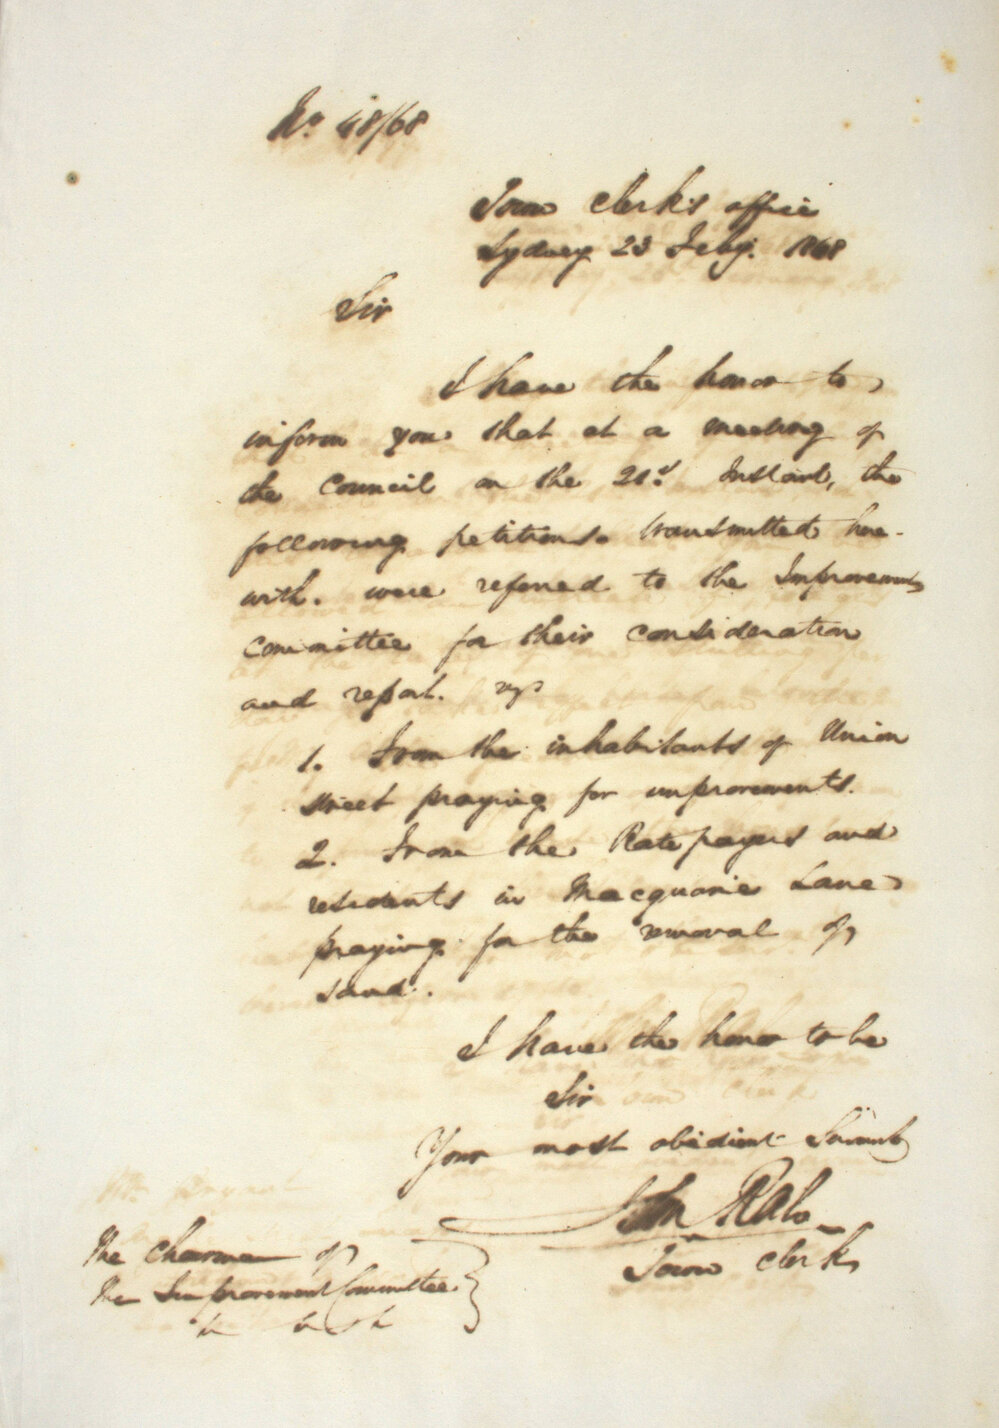 No. 48/68
Town Clerk's Office
Sydney 23 Feby. 1868
Sir
I have the honor to
inform you that at a meeting of
the Council on the 21st Instant, the
following petitions transmitted here-
with. were referred to the Improvement
Committee for their consideration
and report.
1. From the inhabitants of Union
Street praying for improvements.
2. From the Rate payers and
residents in Macquarie Lane
praying for the removal of
sand.
I have the honor to be
Sir
Your most obedient Servant
John Rae
Town Clerk
The Chairman of
The Improvement Committee